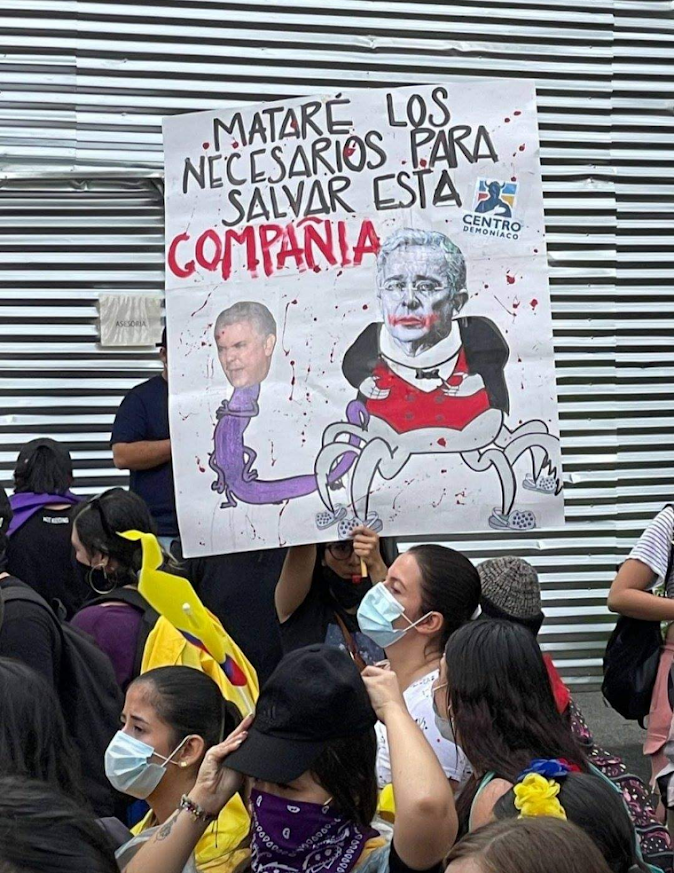 MATARE LOS
NECESARIOS PARA
SALVAR ESTA
COMPAÑIA
CENTRO
DEMONÍACO
ASESORIA